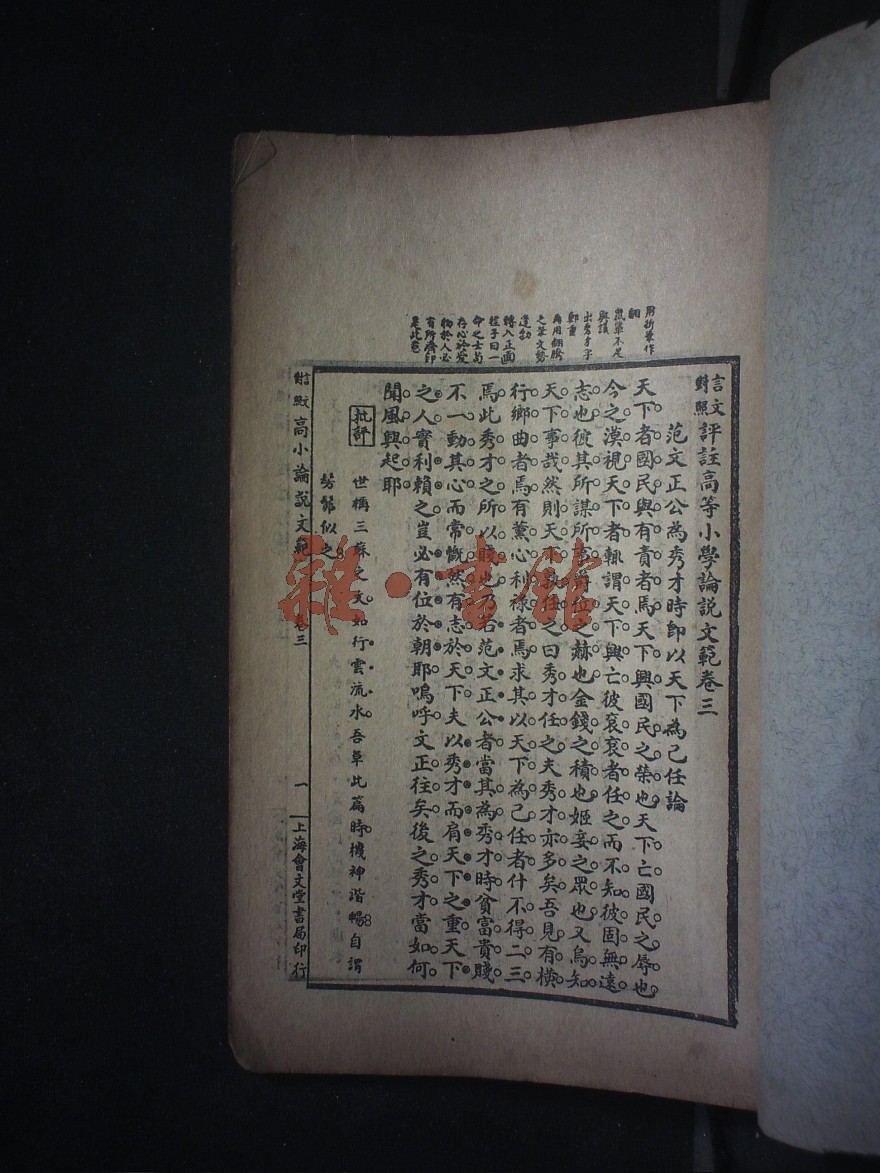 言文對照評註高等小學論說文範卷三
范文正公為秀才時即以天下為己任論
天下者國民與有責者焉天下興國民之榮也天下亡國民之辱也
今之漠視天下者輒謂天下興亡彼袞袞者任之而不知彼固無遠
志也彼其所謀所爵位之赫也金錢之積也姬妾之眾也又烏知
天下事哉然則天下孰任之曰秀才任之夫秀才亦多矣吾見有橫
行鄉曲者焉有薰心利祿者焉求其以天下為己任者什不得二三
焉此秀才之所以賤也乃若范文正公者當其為秀才時貧富貴賤
不一動其心而常慨然有志於天下夫以秀才而肩天下之重天下
之人實利賴之豈必有位於朝耶嗚呼文正往矣後之秀才當如何
聞風興起耶
批評
世稱三蘇之文如行雲流水吾草此篇時機神諧暢自謂
髣髴似之
用折筆作
翻
鼠輩不足
與議
出秀才字
鄭重
再用翻騰
之筆文勢
蓬勃
轉入正面
程子曰一
命之士苟
存心於愛
物於人必
有所濟即
是此意
言文對照高小論說文範
卷三
一
上海會文堂書局印行
雜·書館